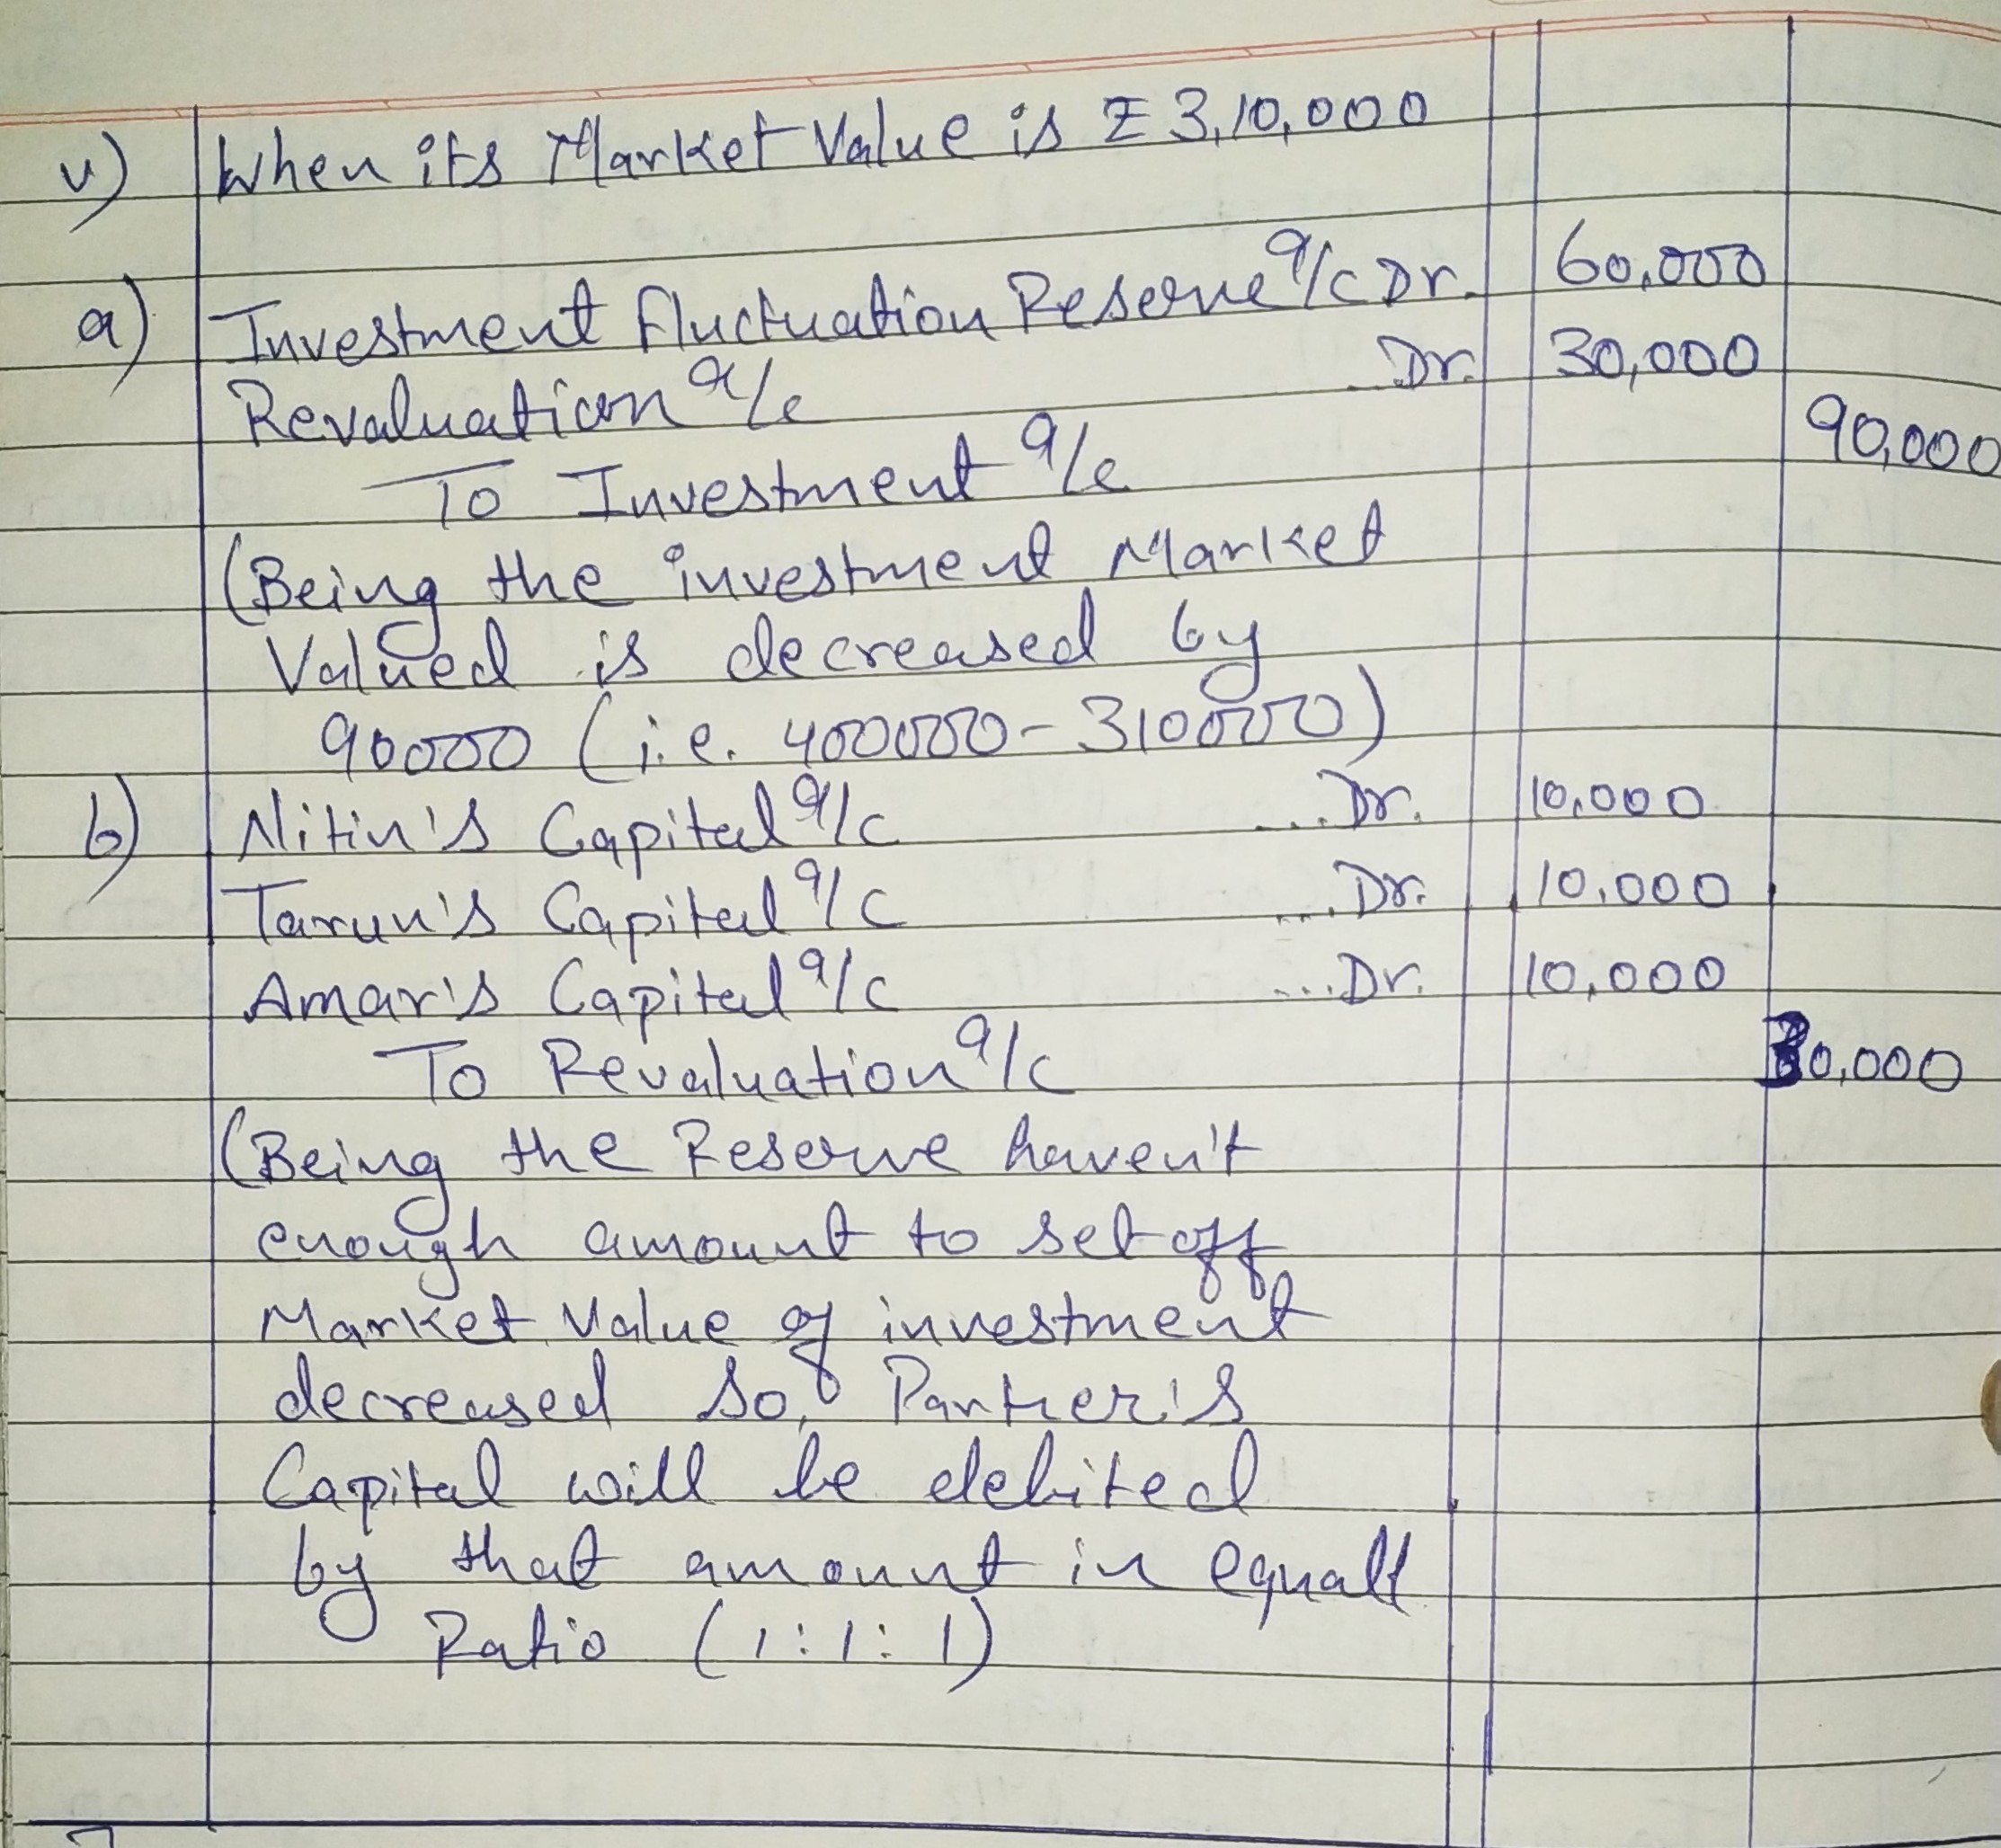 v) When its Market Value is ₹ 3,10,000
a) Investment Fluctuation Reserve a/c Dr. 60,000
Revaluation a/c Dr. 30,000
To Investment a/c 90,000
(Being the investment Market
Valued is decreased by
90000 (i.e. 400000-310000)
b) Nitin's Capital a/c ...Dr. 10,000
Tarun's Capital a/c ....Dr. 10,000
Amar's Capital a/c ...Dr. 10,000
To Revaluation a/c 30,000
(Being the Reserve haven't
enough amount to set off
Market Value of investment
decreased so, Partner's
Capital will be debited
by that amount in equall
Ratio (1:1:1)